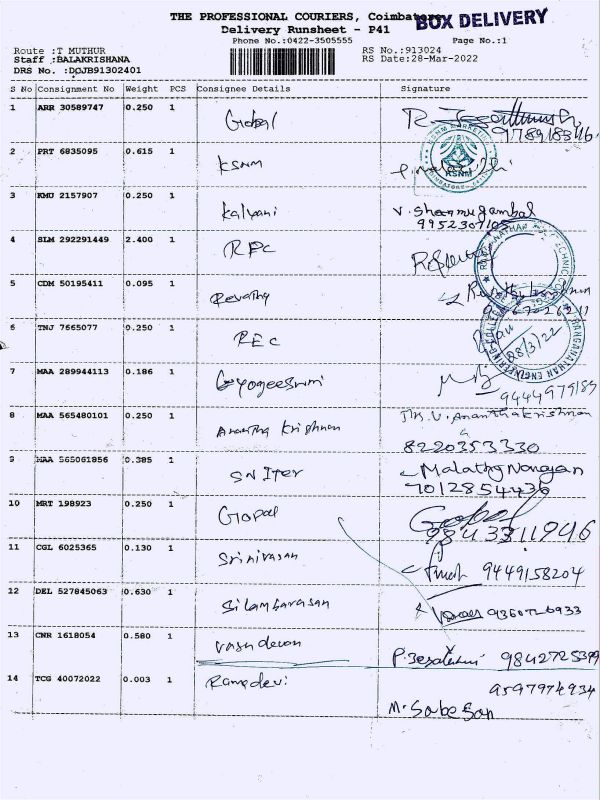 THE PROFESSIONAL COURIERS, Coimbatore
BOX DELIVERY
Delivery Runsheet - P41
Phone No.:0422-3505555 Page No.:1
Route :T MUTHUR RS No.:913024
Staff :BALAKRISHANA RS Date:28-Mar-2022
DRS No. :DCJB91302401
S No Consignment No Weight PCS Consignee Details Signature
1 ARR 30589747 0.250 1 Gopal
2 PRT 6835095 0.615 1 KSNM
KSNM
3 KMU 2157907 0.250 1 Kalyani V. Shanmugambal
9952307105
4 SLM 292291449 2.400 1 RPC
5 CDM 50195411 0.095 1 Revathy
6 TNJ 7665077 0.250 1 REC
28/3/22
7 MAA 289944113 0.186 1 Gyogeeswri
8 MAA 565480101 0.250 1 Anantha Krishnan V. Ananthakrishnan
8220353330
9 MAA 565061856 0.385 1 Malathy Narayan
7012854436
10 MRT 198923 0.250 1 Gopal Gopal
9843311946
11 CGL 6025365 0.130 1 Srinivasan 9449158204
12 DEL 527845063 0.630 1 Silambarasan
13 CNR 1618054 0.580 1 Vasudevan
14 TCG 40072022 0.003 1 Ramadevi 9597974934
M. Sabesan